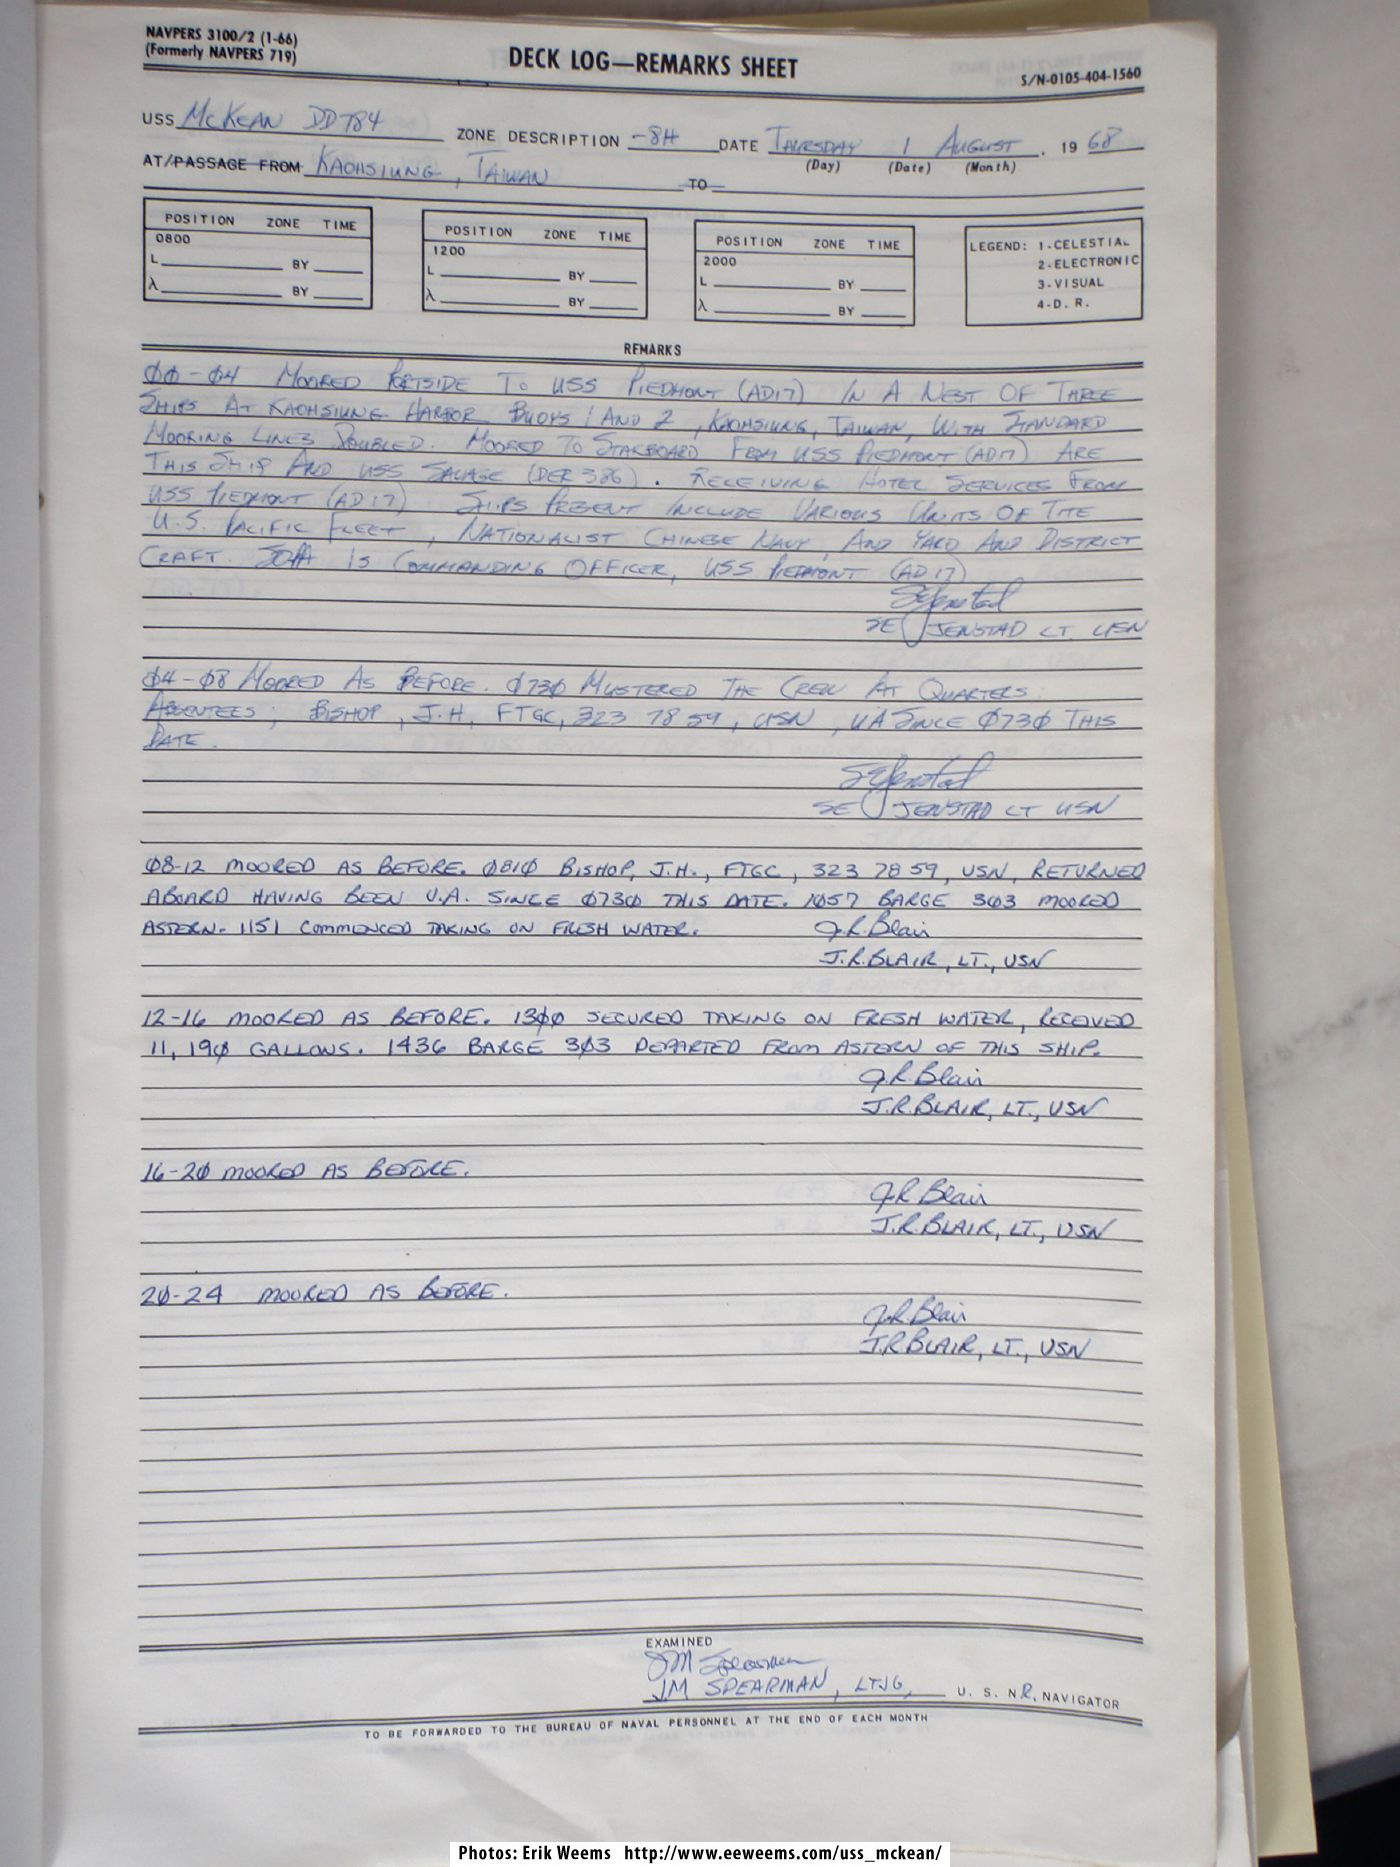 NAVPERS 3100/2 (1-66)
(Formerly NAVPERS 719)
DECK LOG—REMARKS SHEET
S/N-0105-404-1560
USS McKEAN DD784 ZONE DESCRIPTION -8H DATE THURSDAY 1 AUGUST, 19 68
(Day) (Date) (Month)
AT/PASSAGE FROM KAOHSIUNG, TAIWAN TO
POSITION ZONE TIME
0800
L BY
λ BY
POSITION ZONE TIME
1200
L BY
λ BY
POSITION ZONE TIME
2000
L BY
λ BY
LEGEND: 1-CELESTIAL
2-ELECTRONIC
3-VISUAL
4-D. R.
REMARKS
ØØ-Ø4 MOORED PORTSIDE TO USS PIEDMONT (AD17) IN A NEST OF THREE
SHIPS AT KAOHSIUNG HARBOR BUOYS 1 AND 2, KAOHSIUNG, TAIWAN, WITH STANDARD
MOORING LINES DOUBLED. MOORED TO STARBOARD FROM USS PIEDMONT (AD17) ARE
THIS SHIP AND USS SAVAGE (DER 386). RECEIVING HOTEL SERVICES FROM
USS PIEDMONT (AD17). SHIPS PRESENT INCLUDE VARIOUS UNITS OF THE
U.S. PACIFIC FLEET, NATIONALIST CHINESE NAVY, AND YARD AND DISTRICT
CRAFT. SOPA IS COMMANDING OFFICER, USS PIEDMONT (AD17)
SE Jenstad
SE JENSTAD LT. USN
Ø4-Ø8 MOORED AS BEFORE. Ø73Ø MUSTERED THE CREW AT QUARTERS.
ABSENTEES; BISHOP, J.H, FTGC, 323 78 59, USN, UA SINCE Ø73Ø THIS
DATE.
SE Jenstad
SE JENSTAD LT USN
Ø8-12 MOORED AS BEFORE. Ø81Ø BISHOP, J.H., FTGC, 323 78 59, USN, RETURNED
ABOARD HAVING BEEN U.A. SINCE Ø73Ø THIS DATE. 1Ø57 BARGE 3Ø3 MOORED
ASTERN. 1151 COMMENCED TAKING ON FRESH WATER.
J.R. Blair
J.R. BLAIR, LT., USN
12-16 MOORED AS BEFORE. 13ØØ SECURED TAKING ON FRESH WATER, RECEIVED
11,19Ø GALLONS. 1436 BARGE 3Ø3 DEPARTED FROM ASTERN OF THIS SHIP.
J.R. Blair
J.R. BLAIR, LT., USN
16-2Ø MOORED AS BEFORE.
J.R. Blair
J.R. BLAIR, LT., USN
2Ø-24 MOORED AS BEFORE.
J.R. Blair
J.R. BLAIR, LT., USN
EXAMINED
JM Spearman
JM SPEARMAN, LTJG, U. S. NR. NAVIGATOR
TO BE FORWARDED TO THE BUREAU OF NAVAL PERSONNEL AT THE END OF EACH MONTH
Photos: Erik Weems http://www.eeweems.com/uss_mckean/